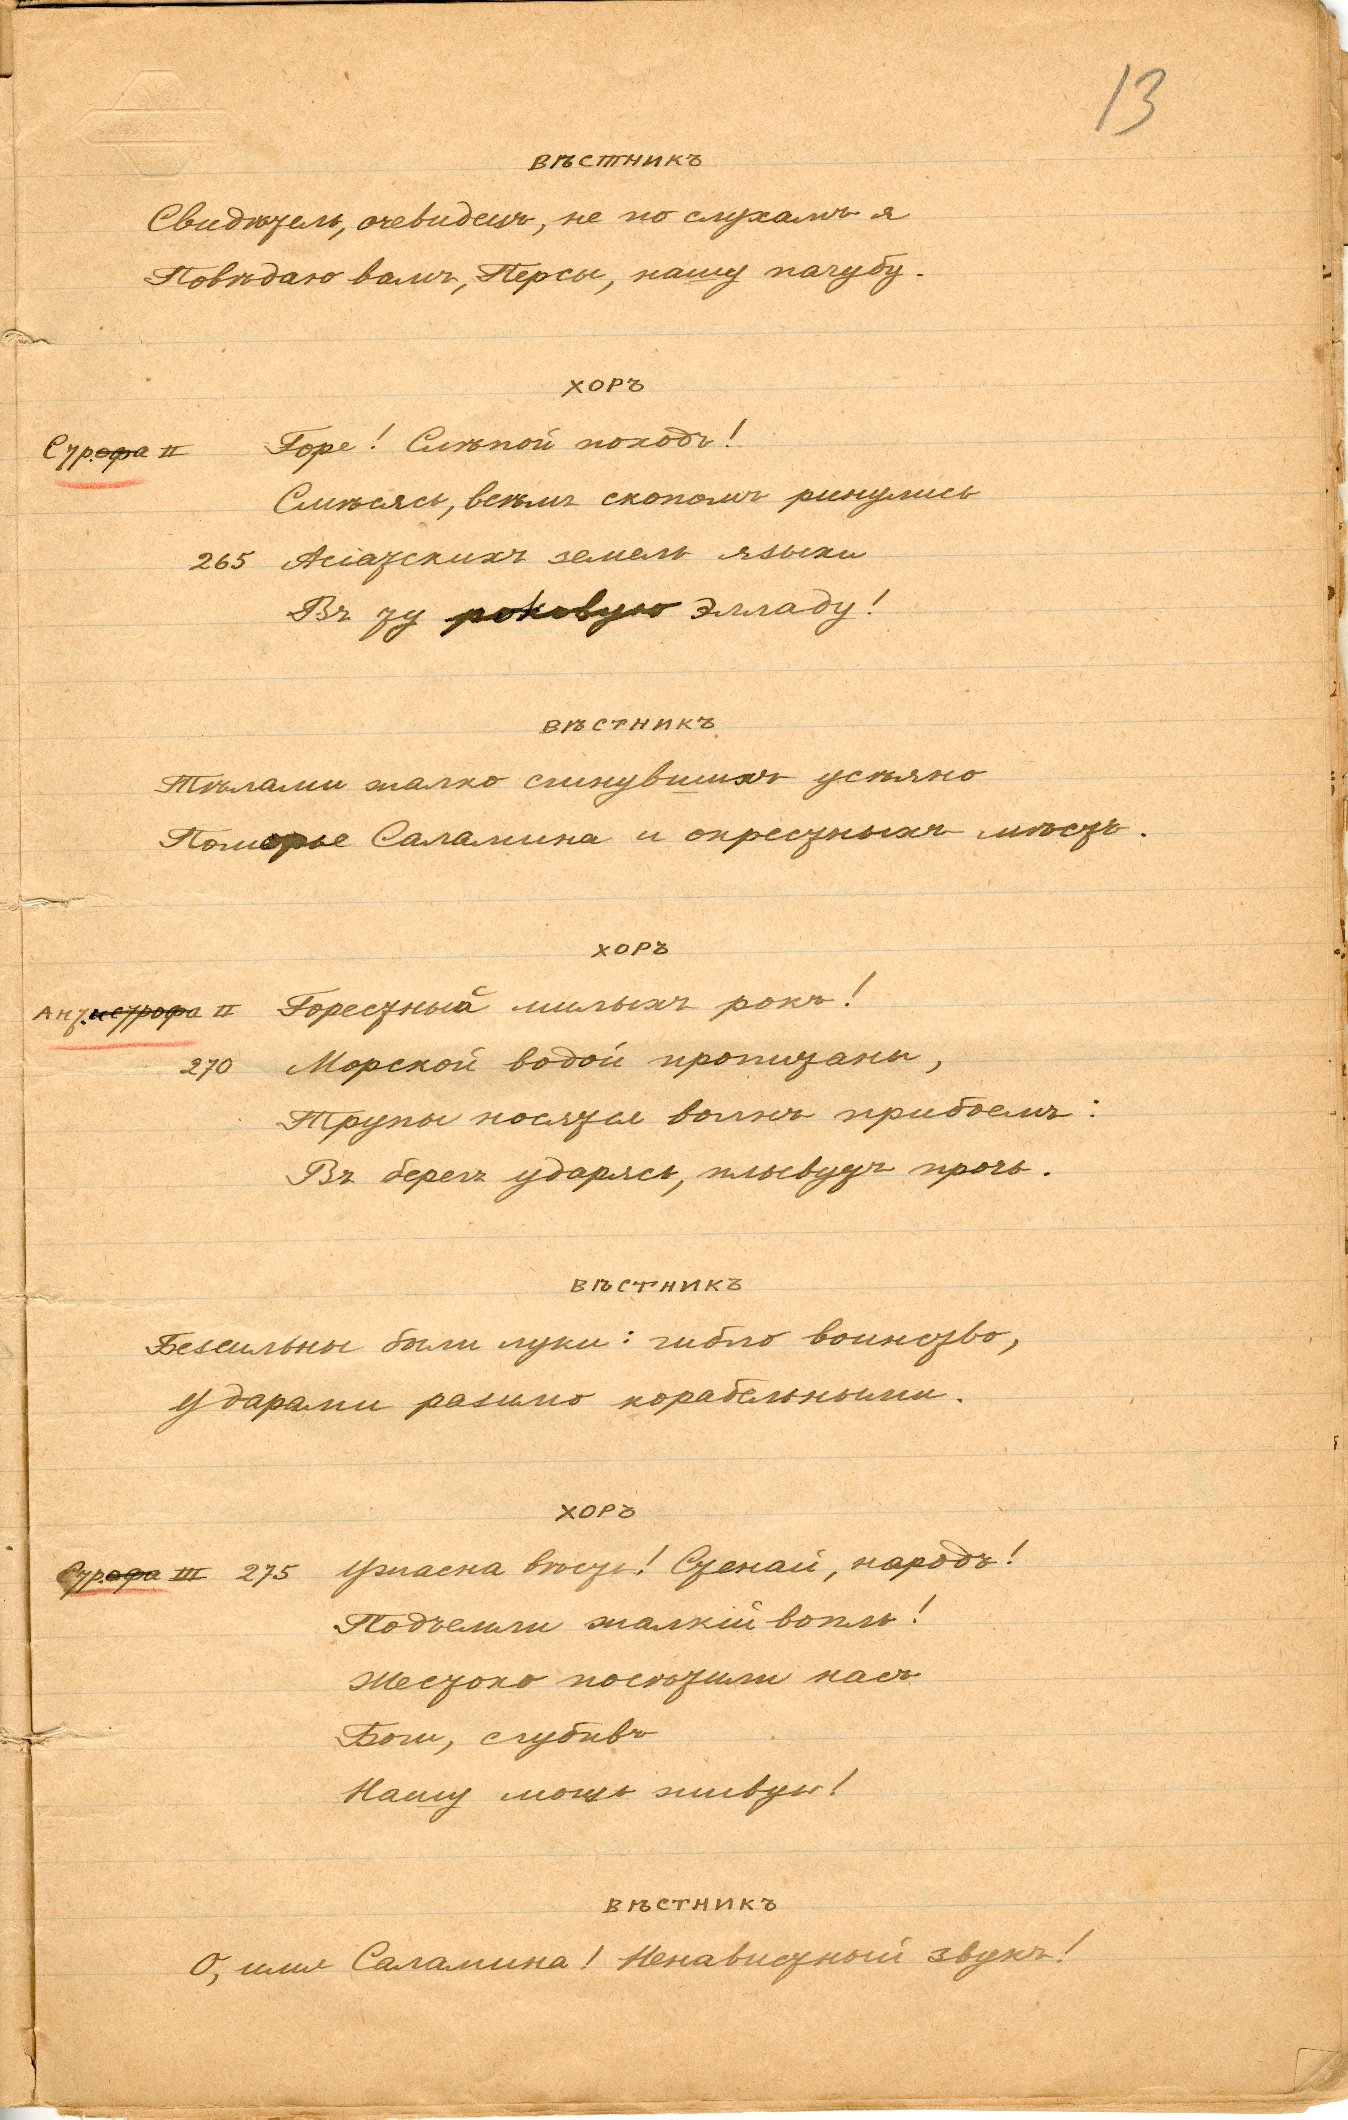 13
ВѢСТНИКЪ
Свидѣтель, очевидецъ, не по слухамъ я
Повѣдаю вамъ, Персы, нашу пагубу.
ХОРЪ
Строфа II Горе! Слѣпой походъ!
Смѣсясь, всѣмъ скопомъ ринулись
265 Асіатскихъ земель языки
Въ ту роковую Элладу!
ВѢСТНИКЪ
Тѣлами жалко сгинувшихъ усѣяно
Поморье Саламина и окрестныхъ мѣстъ.
ХОРЪ
Антистрофа II Горестный милыхъ рокъ!
270 Морской водой пропитаны,
Трупы носятся волнъ прибоемъ:
Въ берегъ ударясь, плывутъ прочь.
ВѢСТНИКЪ
Безсильны были луки: гибло воинство,
Ударами разимо корабельными.
ХОРЪ
Строфа III 275 Ужасна вѣсть! Стенай, народъ!
Подъемли жалкій вопль!
Жестоко посѣтили насъ
Боги, сгубивъ
Нашу мощь живую!
ВѢСТНИКЪ
О, имя Саламина! Ненавистный звукъ!